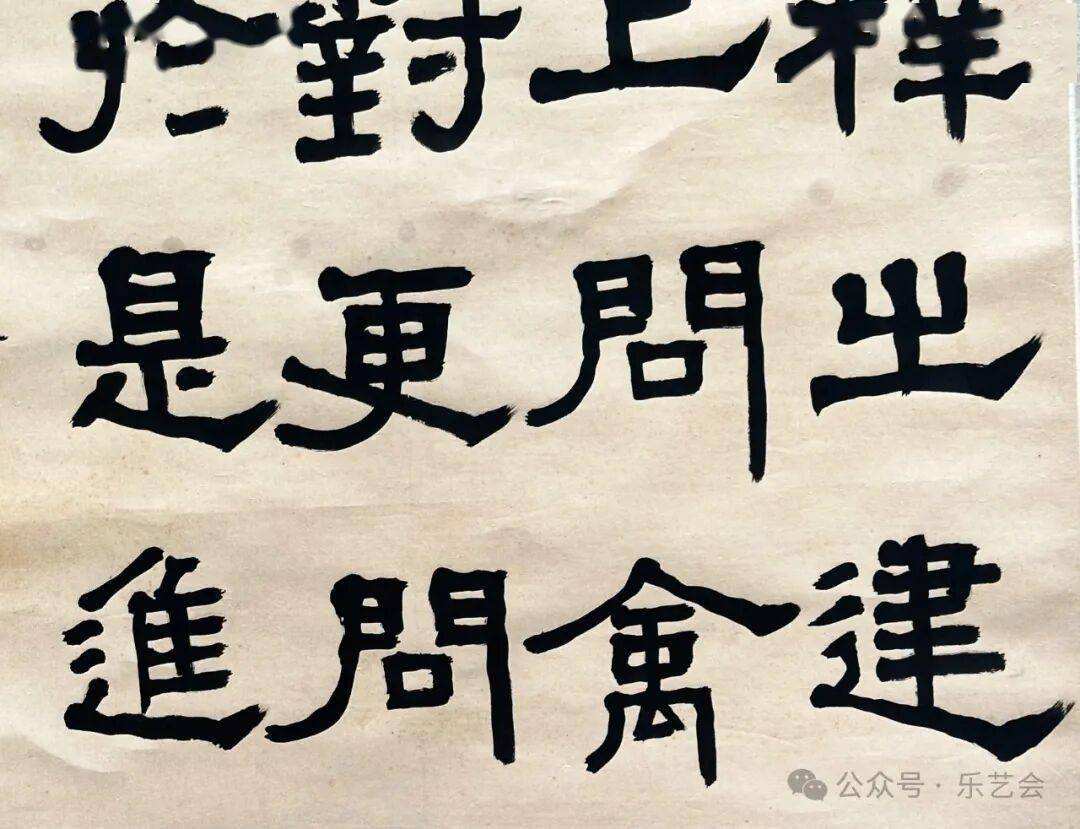 釋之建
上問禽
對更問
於是進
公众号 · 乐艺会